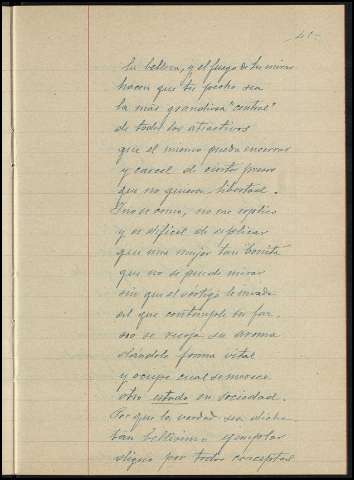 41-
tu belleza, y el fuego de tu mirar
hacen que tu pecho sea
la más grandiosa "central"
de todos los atractivos
que el mismo pueda encerrar
y carcel de cierto preso
que no quiere libertad.
Ino se como, no me esplico
y es dificil de esplicar
que una mujer tan bonita
que no se puede mirar
sin que el vértigo le invada
al que contemple su faz.
no se recoja su aroma
dándole forma vital
y ocupe cual se merece
otro estado en sociedad.
Por que la verdad sea dicha
tan bellisimo ejemplar
digno por todos conceptos